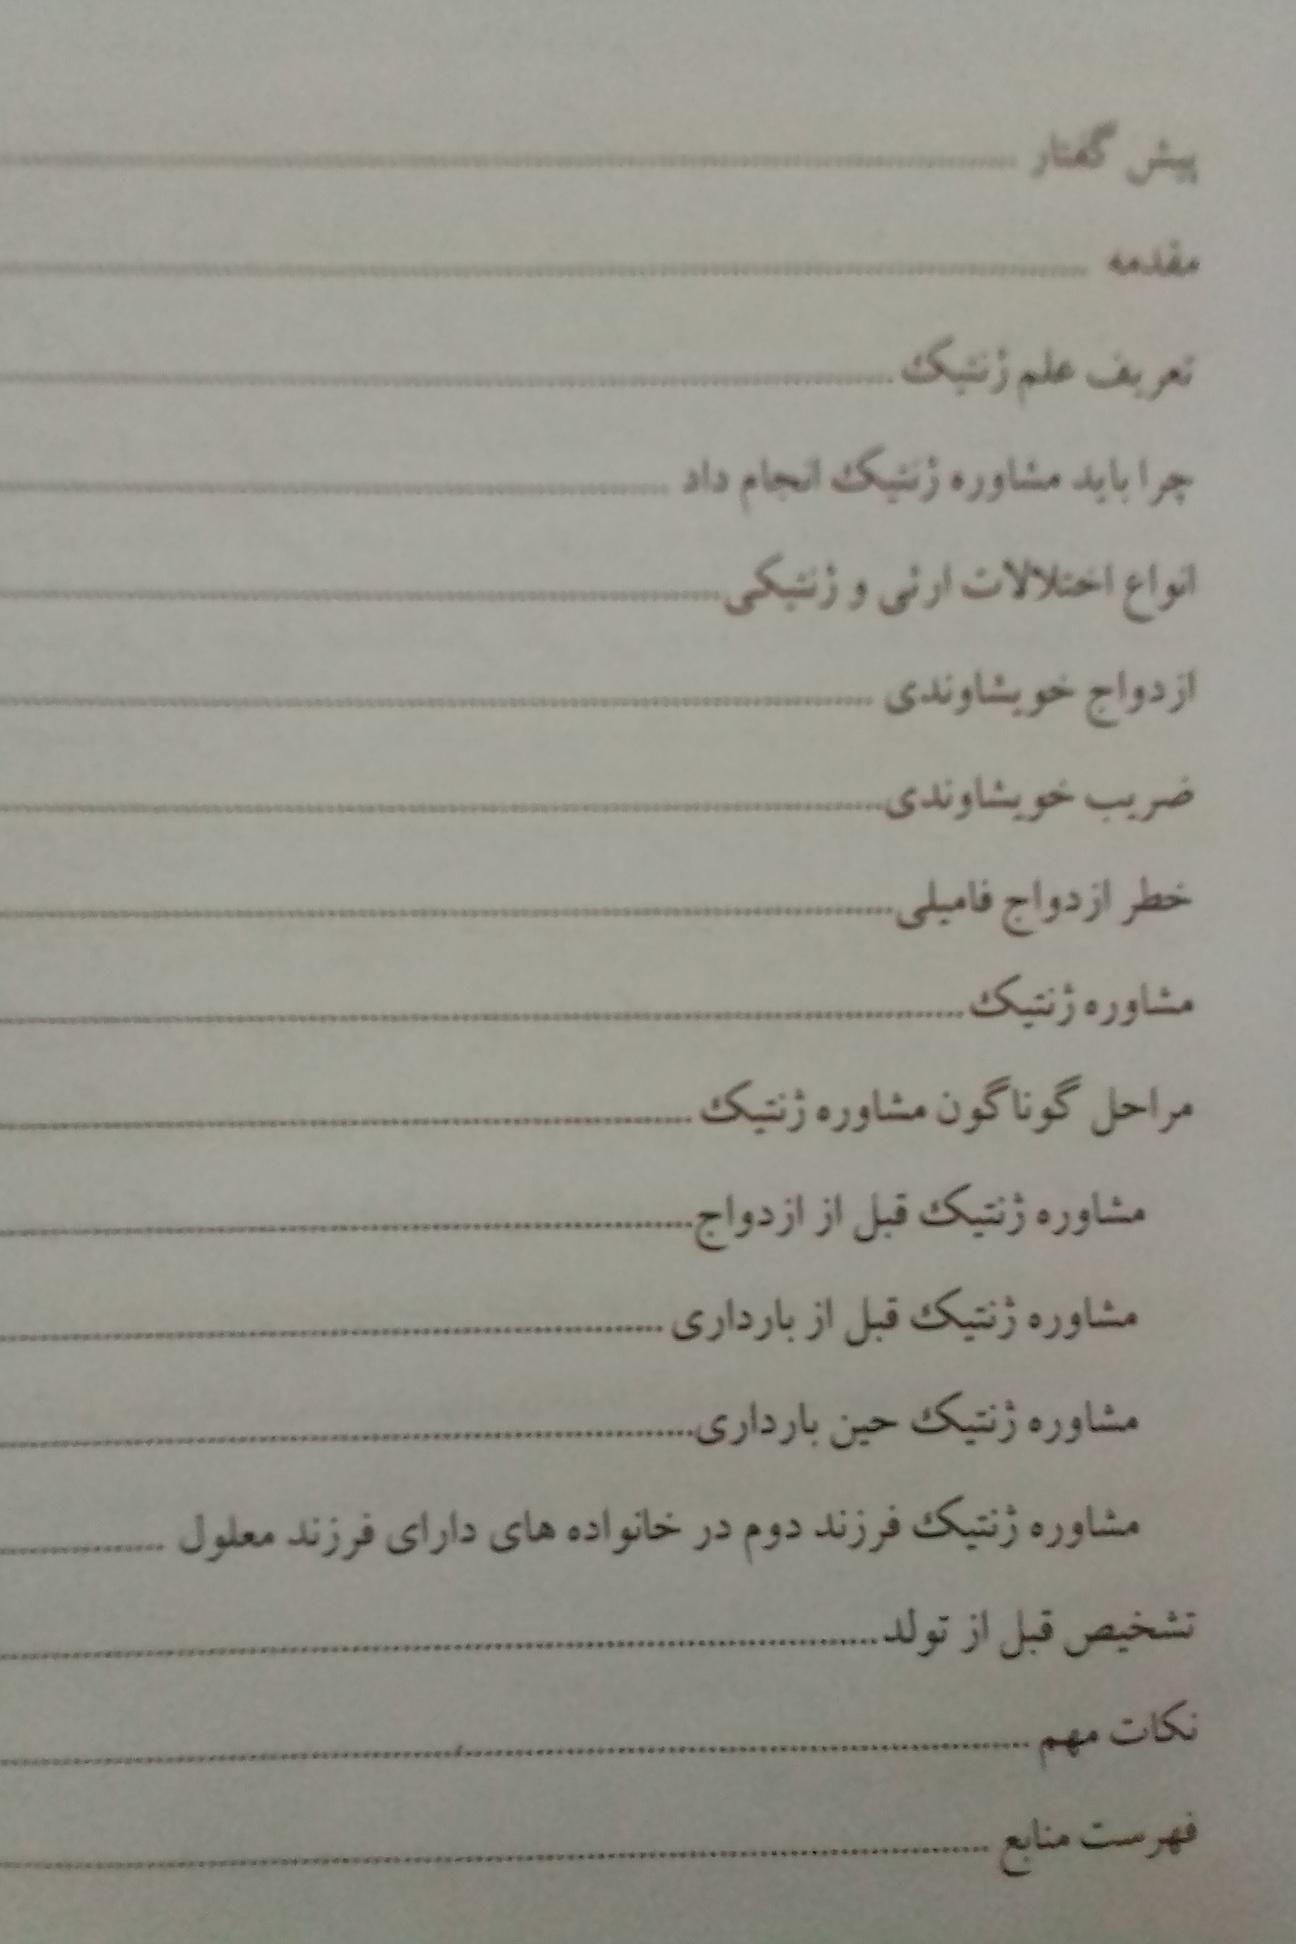 پیش گفتار ........................
مقدمه ........................
تعریف علم ژنتیک........................
چرا باید مشاوره ژنتیک انجام داد ........................
انواع اختلالات ارثی و ژنتیکی........................
ازدواج خویشاوندی ........................
ضریب خویشاوندی........................
خطر ازدواج فامیلی........................
مشاوره ژنتیک........................
مراحل گوناگون مشاوره ژنتیک ........................
مشاوره ژنتیک قبل از ازدواج........................
مشاوره ژنتیک قبل از بارداری ........................
مشاوره ژنتیک حین بارداری........................
مشاوره ژنتیک فرزند دوم در خانواده های دارای فرزند معلول ............
تشخیص قبل از تولد........................
نکات مهم ........................
فهرست منابع ........................